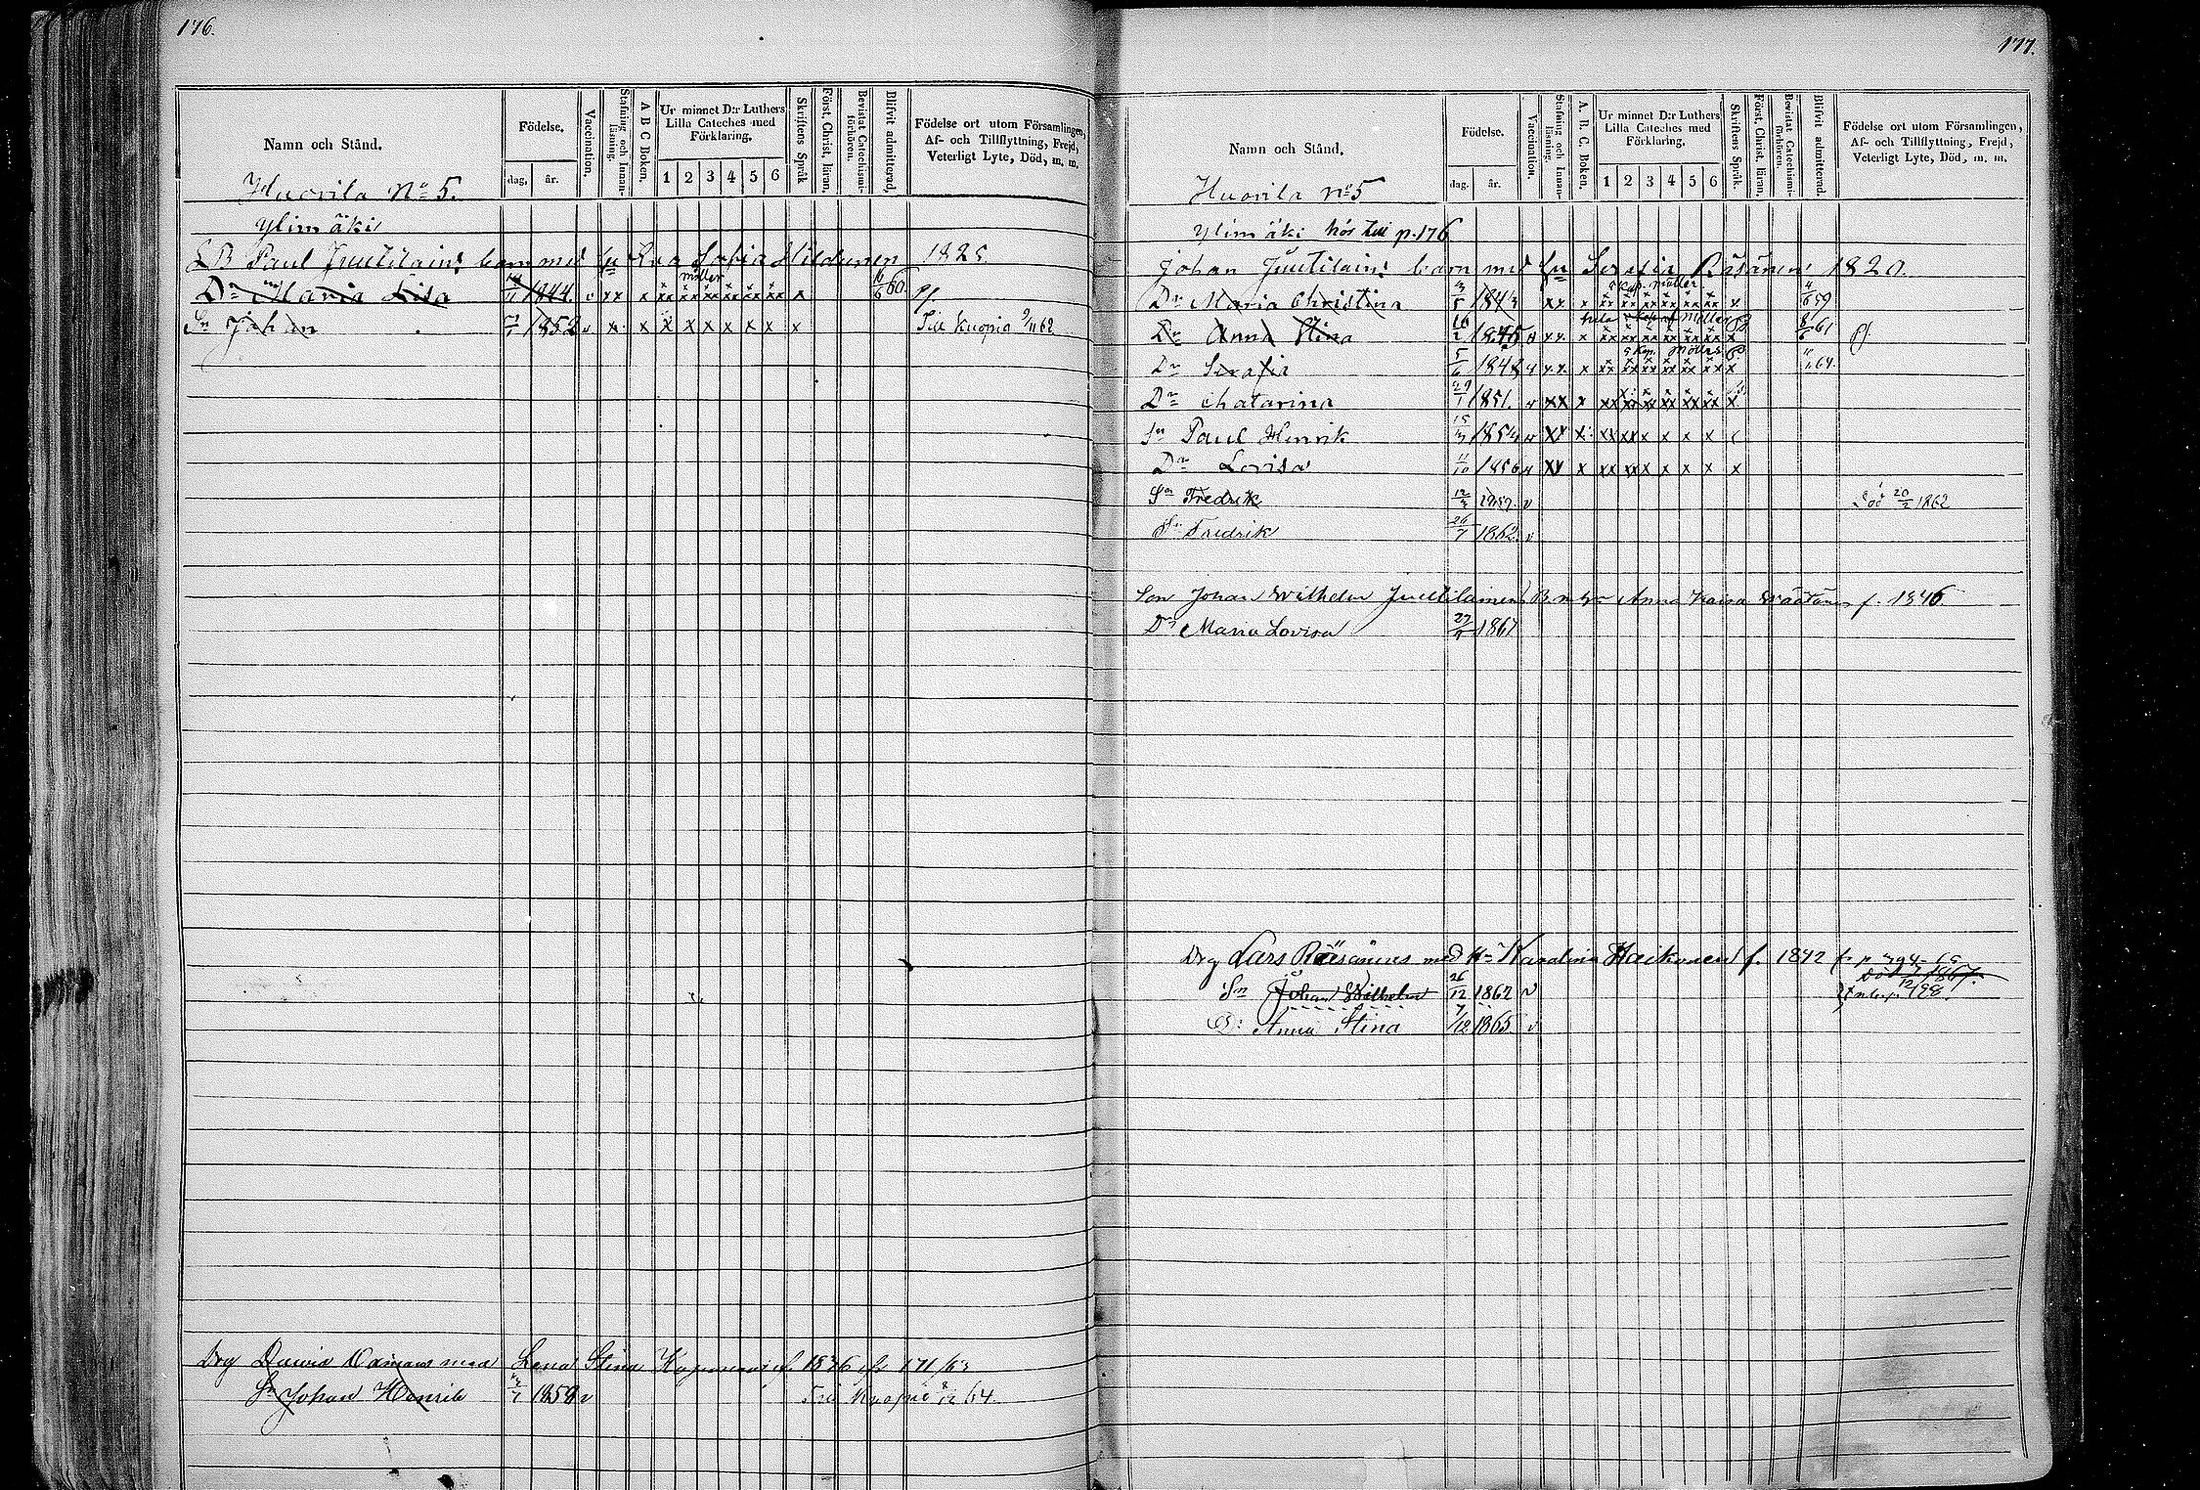 176.
Namn och Stånd.
Födelse.
dag, år.
Vaccination.
Stafning och Innan-läsning.
A B C Boken.
Ur minnet D:r Luthers Lilla Cateches med Förklaring.
1 2 3 4 5 6
Skriftens Språk
Först. Christ. läran.
Bevistat Catechismi-förhören.
Blifvit admitterad.
Födelse ort utom Församlingen, Af- och Tillflyttning, Frejd, Veterligt Lyte, Död, m. m.
Huorila No 5.
Ylimäki
Paul Juutilains barn med hu Eva Sofia Hildunen 1825
Dr Maria Lisa 1844. v xx x xx xx xx xx xx xx x 60
Sn Johan 1852 v x x x x x x x x x Till Kuopio 9/11 62
Drg David med Lena Stina f. 1836 fr 171/63
Sn Johan Henrik 1859 v Till Kuopio 64.
177.
Namn och Stånd.
Födelse.
dag. år.
Vaccination.
Stafning och Innan-läsning.
A. B. C. Boken.
Ur minnet D:r Luthers Lilla Cateches med Förklaring.
1 2 3 4 5 6
Skriftens Språk.
Först. Christ. läran.
Bevistat Catechismi-förhören.
Blifvit admitterad.
Födelse ort utom Församlingen, Af- och Tillflyttning, Frejd, Veterligt Lyte, Död, m. m.
Huorila No 5
Ylimäki hör till p. 176
Johan Juutilains barn med hu Serafia Räsänen 1820.
Dr Maria Christina 3/5 1843 xx x xx xx xx xx xx xx x 4/6 59
Dr Anna Stina 16/2 1845 xx x xx xx xx xx xx xx x 61
Dr Serafia 5/6 1848 xx x xx xx xx xx xx xx x 64.
Dr Chatarina 29/1 1851. v xx x xx xx xx xx xx xx x
Sn Paul Henrik 15/3 1854 v xx x xx xx x x x x
Dr Lovisa 11/10 1856 v xx x xx xx x x x x x
Sn Fredrik 1859. v Död 20/2 1862
Sn Fredrik 26/7 1862. v
Son Johan Wilhelm Juutilainens B. m. hu Anna Kaisa Väätänen f. 1846
Dr Maria Lovisa 1867
Drg Lars Räsänens med Hu Karolina Haikonen f. 1842 fr p 794-65
Död 1867.
Sn Johan Wilhelm 26/12 1862 v
D: Anna Stina 7/12 1865 v